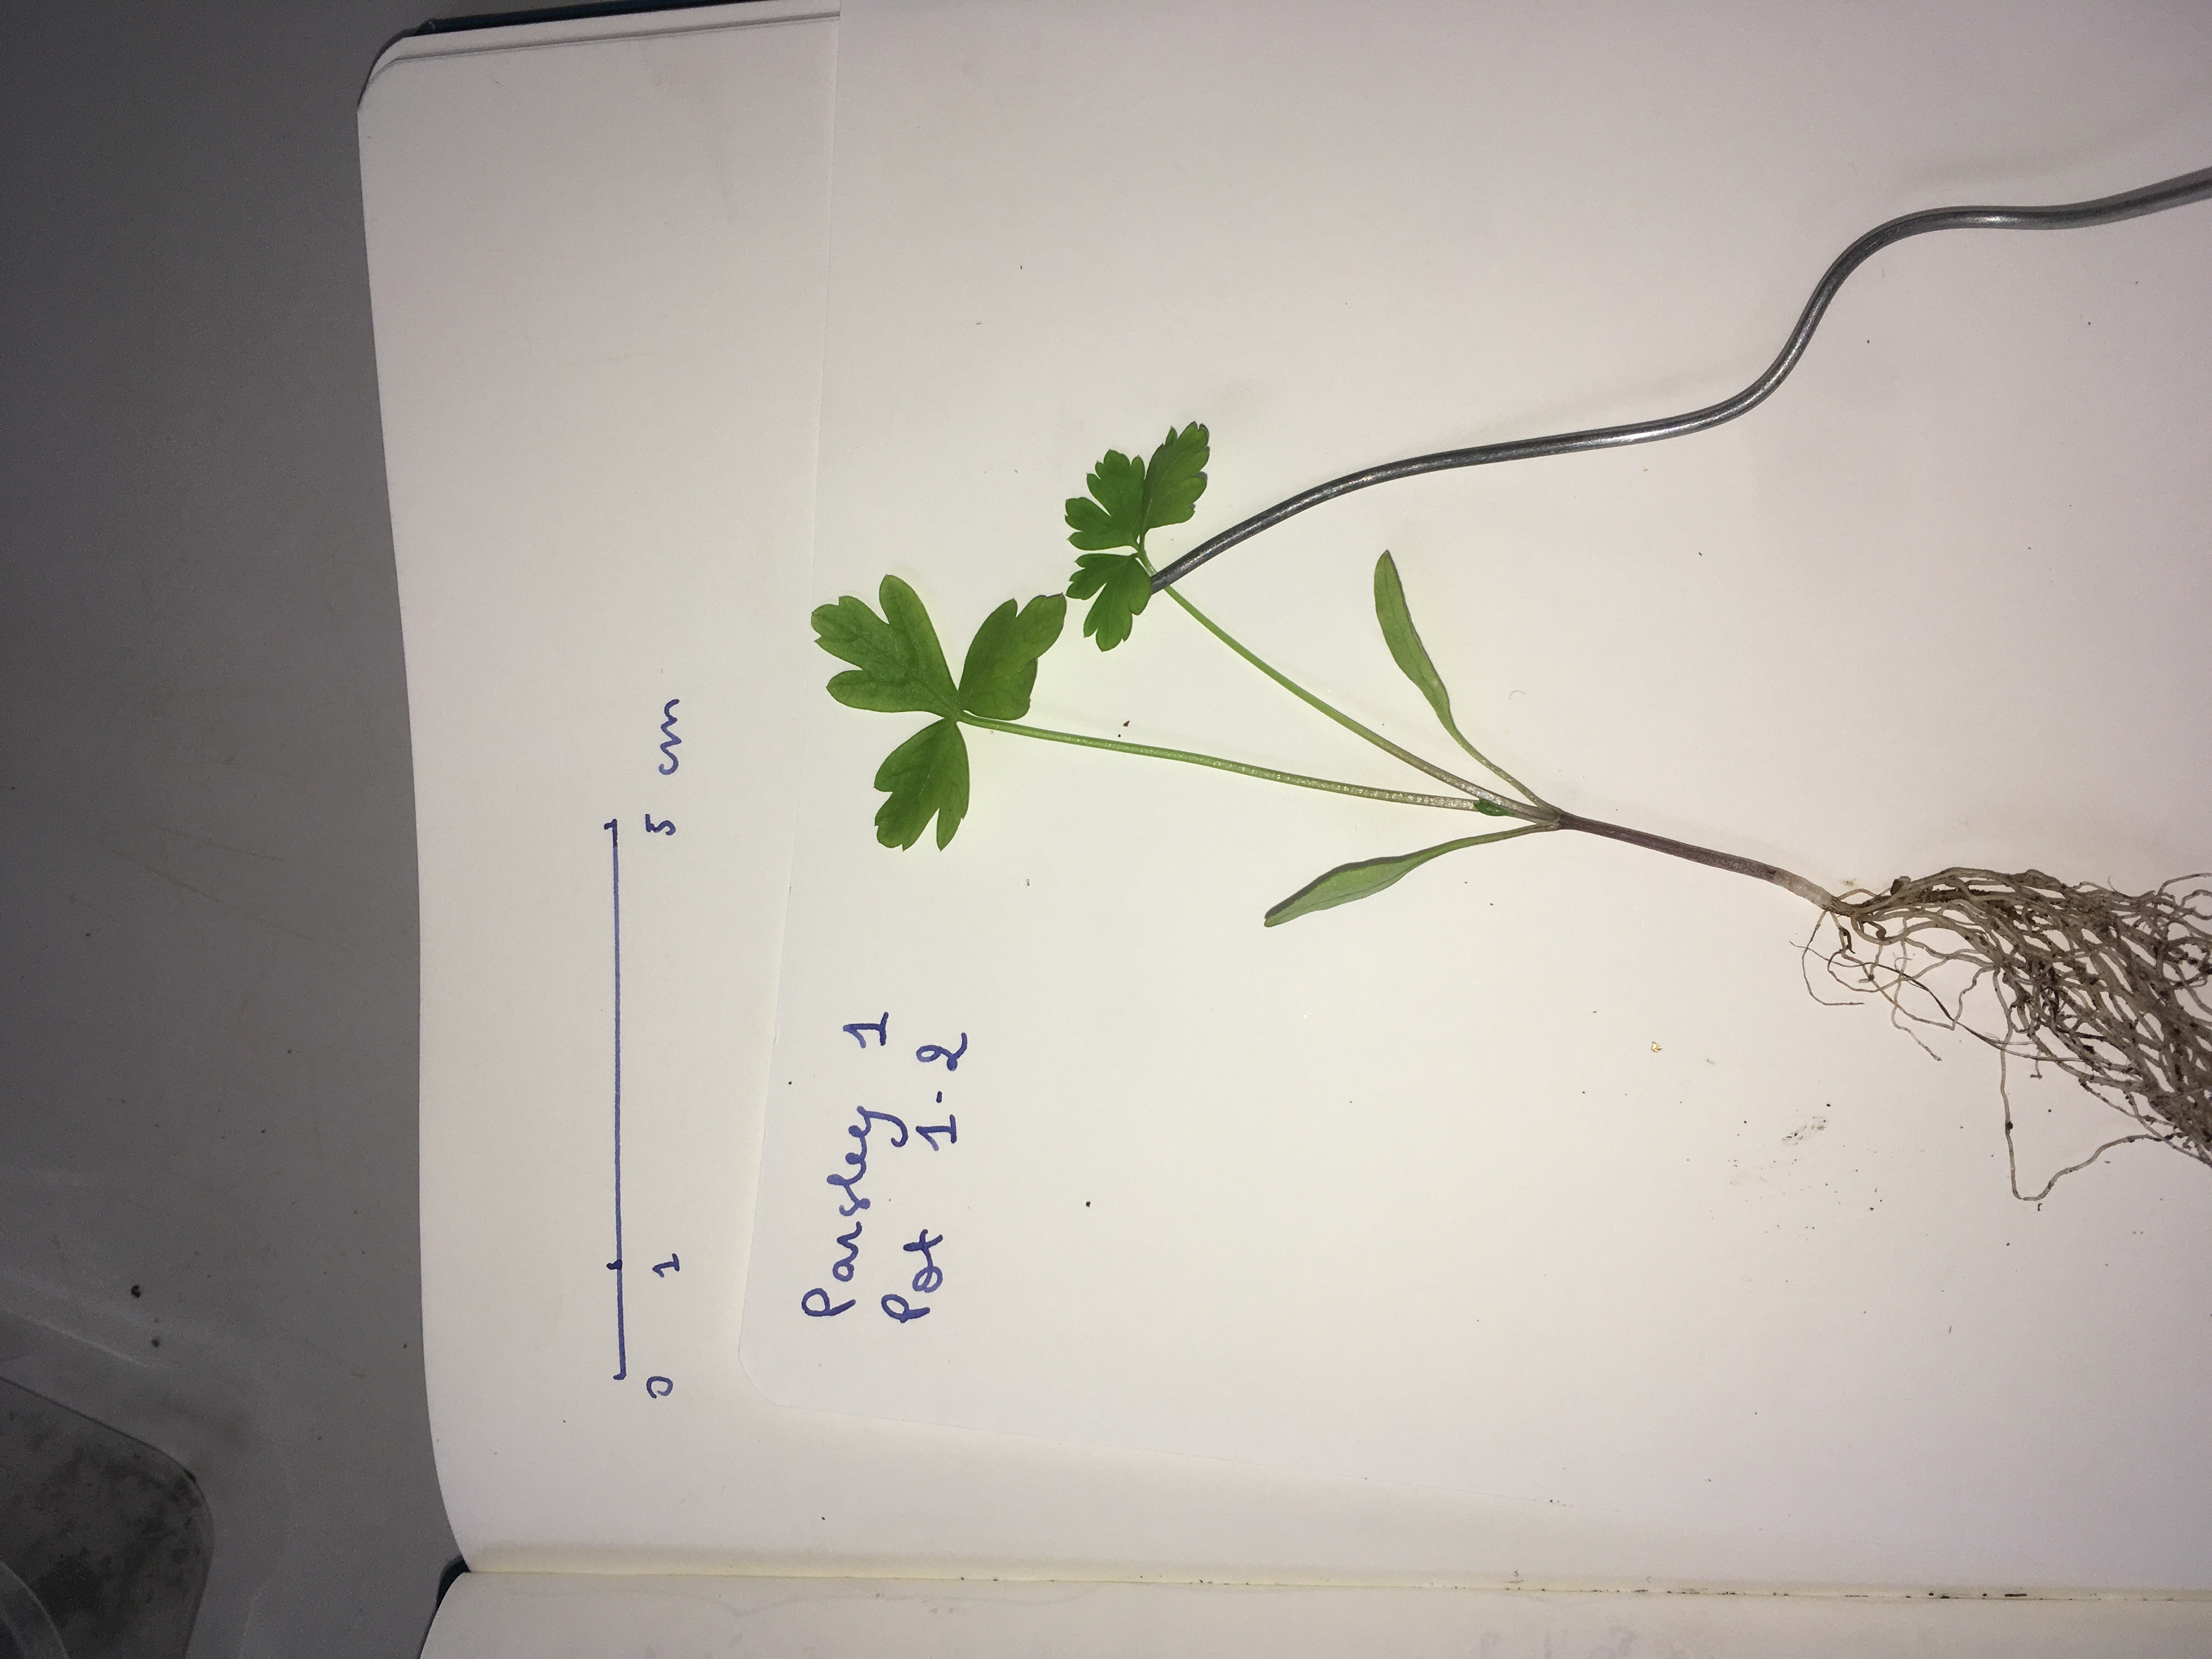 0 1 5 cm
Parsley 1
Pot 1-2